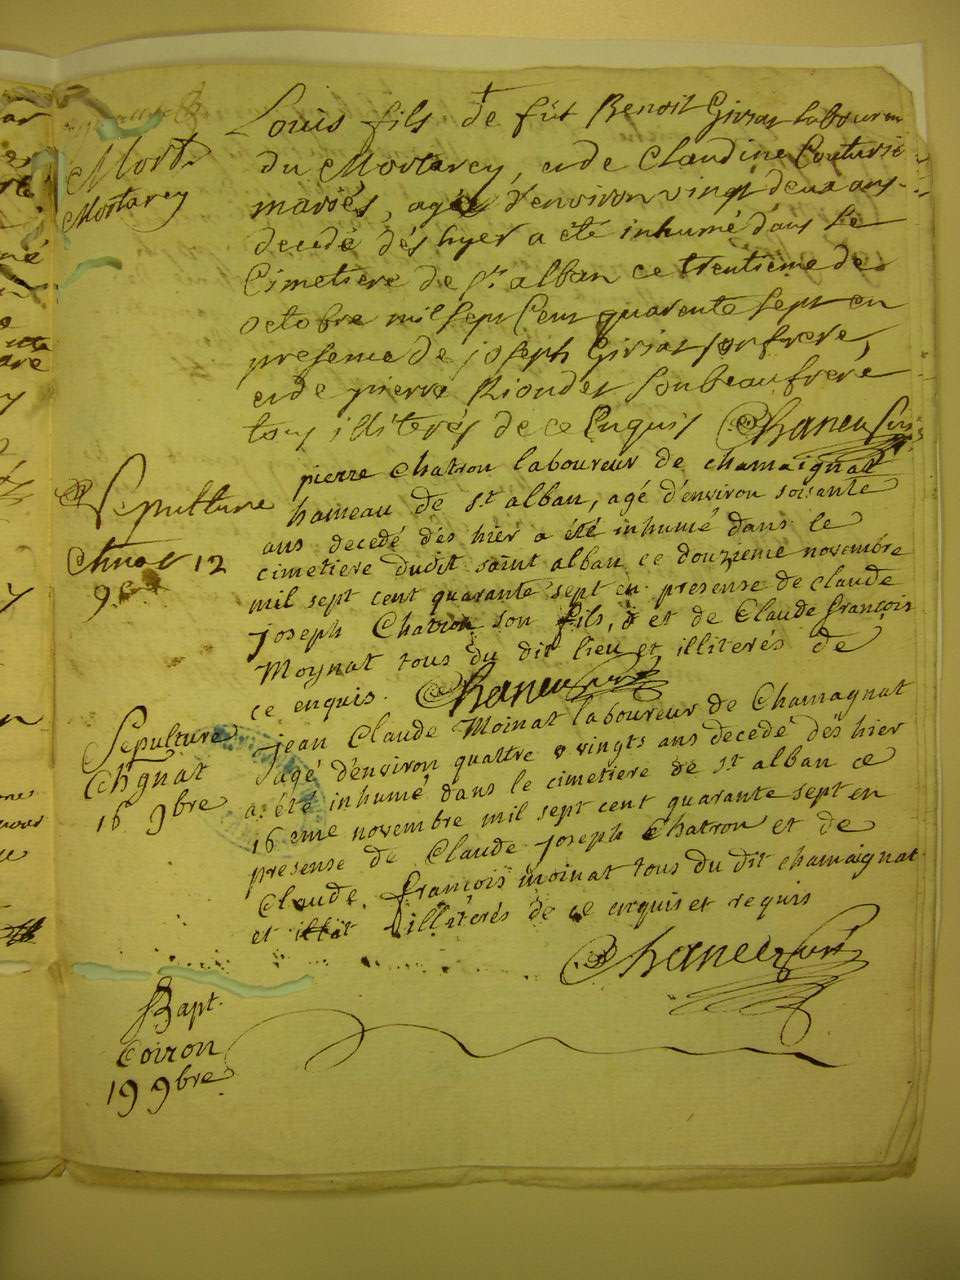 Mort.
Mortarey
Louis fils de fût Benoit Giriat laboureur
du Mortarey, et de Claudine Couturie
mariés, agé d'environ vingt deux ans
decedé dés hyer a été inhumé dans le
Cimetiere de st. alban ce trentieme de
octobre mil sept Cent quarente sept en
presence de joseph Giriat son frere,
et de pierre Riondet son beau frere
tous illiterés de ce Enquis Chaneu curé
Sepulture
12
pierre Chatron laboureur de chamaignat
hameau de st alban, agé d'environ soisante
ans decedé dés hier a été inhumé dans le
cimetiere dudit saint alban ce douzieme novembre
mil sept cent quarante sept en presense de claude
joseph Chatron son fils, et de Claude françois
Moynat tous du dit lieu et illiterés de
ce enquis. Chaneu curé
Sepulture
Chgnat
16 9bre
jean Claude Moinat laboureur de Chamagnat
agé d'environ quattre vingts ans decedé dés hier
a été inhumé dans le cimetiere de st alban ce
16 eme novembre mil sept cent quarante sept en
presense de Claude joseph Chatron et de
Claude françois moinat tous du dit chamaignat
et illiterés de ce enquis et requis
Chaneu curé
Bapt.
Coiron
19 9bre